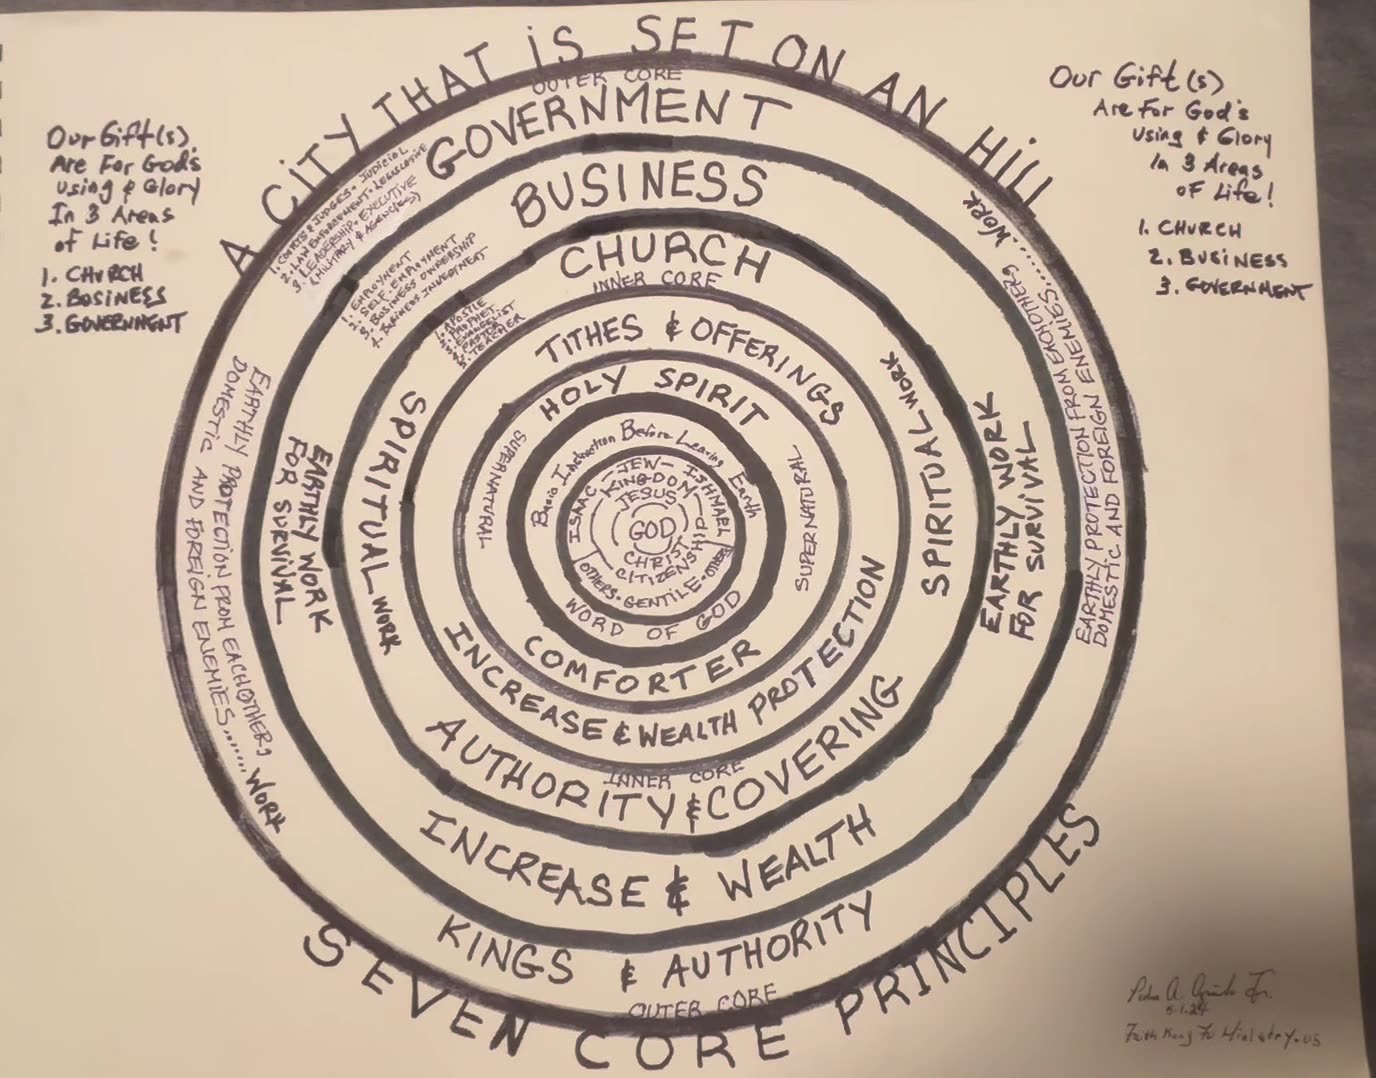 A CITY THAT iS SET ON AN HILL
OUTER CORE
GOVERNMENT
1. COURTS & JUDGES • JUDICIAL
2. LAW ENFORCEMENT • LEGISLATIVE
3. LEADERSHIP • EXECUTIVE
(MILITARY & AGENCIES)
WORK
EARTHLY PROTECTION FROM EACHOTHERS
DOMESTIC AND FOREIGN ENEMIES....... WORK
WORK........
EARTHLY PROTECTION FROM EACHOTHERS
DOMESTIC AND FOREIGN ENEMIES...
KINGS & AUTHORITY
OUTER CORE
BUSINESS
1. EMPLOYMENT
2. SELF EMPLOYMENT
3. BUSINESS OWNERSHIP
4. BUSINESS INVESTMENT
EARTHLY WORK
FOR SURVIVAL
EARTHLY WORK
FOR SURVIVAL
INCREASE & WEALTH
CHURCH
INNER CORE
1. APOSTLE
2. PROPHET
3. EVANGELIST
4. PASTOR
5. TEACHER
SPIRITUAL WORK
SPIRITUAL WORK
INNER CORE
AUTHORITY & COVERING
TITHES & OFFERINGS
INCREASE & WEALTH PROTECTION
HOLY SPIRIT
SUPERNATURAL
SUPERNATURAL
COMFORTER
Basic Instruction Before Leaving Earth
WORD OF GOD
ISAAC
JEW-
ISHMAEL
KINGDOM
JESUS
GOD
CHRIST
CITIZENSHIP
OTHERS • GENTILE • OTHERS
SEVEN CORE PRINCIPLES
Our Gift(s)
Are For God's
Using & Glory
In 3 Areas
of Life!
1. CHURCH
2. BUSINESS
3. GOVERNMENT
Our Gift(s)
Are For God's
Using & Glory
In 3 Areas
OF Life!
1. CHURCH
2. BUSINESS
3. GOVERNMENT
A.
Jr.
5.1.24
Faith Kung Fu Ministry.US